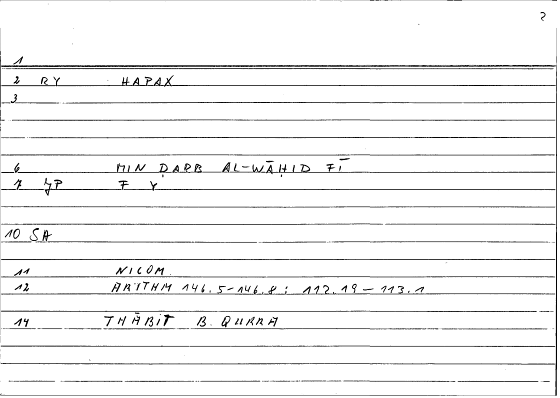 2
1
2 RY HAPAX
3
6 MIN ḌARB AL-WĀḤID FĪ
7 ȜP F Y
10 SA
11 NICOM.
12 ARITHM 146.5-146.8 : 112.19 - 113.1
14 THĀBIT B. QURRA